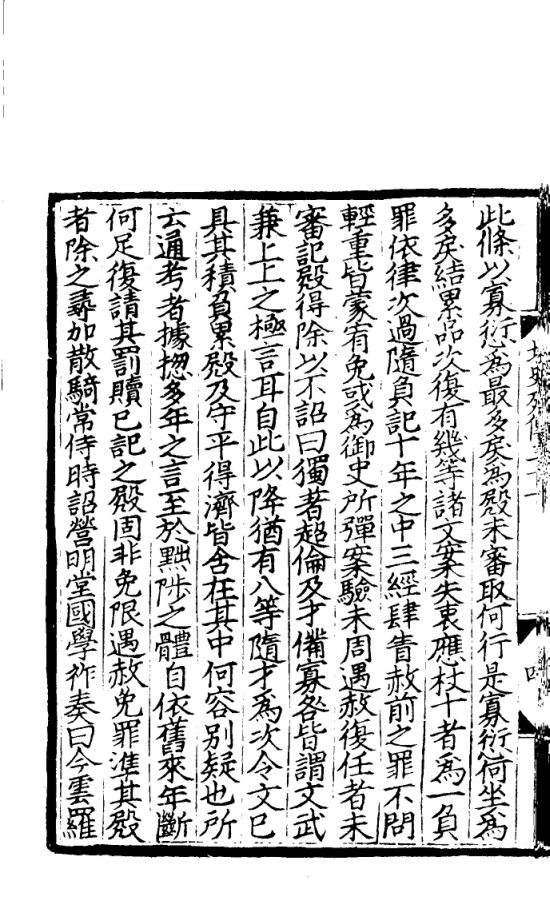 此條以寡愆為最多戾為殿未審取何行是寡愆何坐為
多戾結累品次復有幾等諸文案失衷應杖十者為一負
罪依律次過隨負記十年之中三經肆眚赦前之罪不問
輕重皆蒙宥免或為御史所彈案驗未周遇赦復任者未
審記殿得除以不詔曰獨著超倫及才備寡咎皆謂文武
兼上上之極言耳自此以降猶有八等隨才為次令文已
具其積負累殿及守平得濟皆含在其中何容別疑也所
云通考者據揔多年之言至於黜陟之體自依舊來年斷
何足復請其罰贖已記之殿固非免限遇赦免罪準其殿
者除之尋加散騎常侍時詔營明堂國學祚奏曰今雲羅